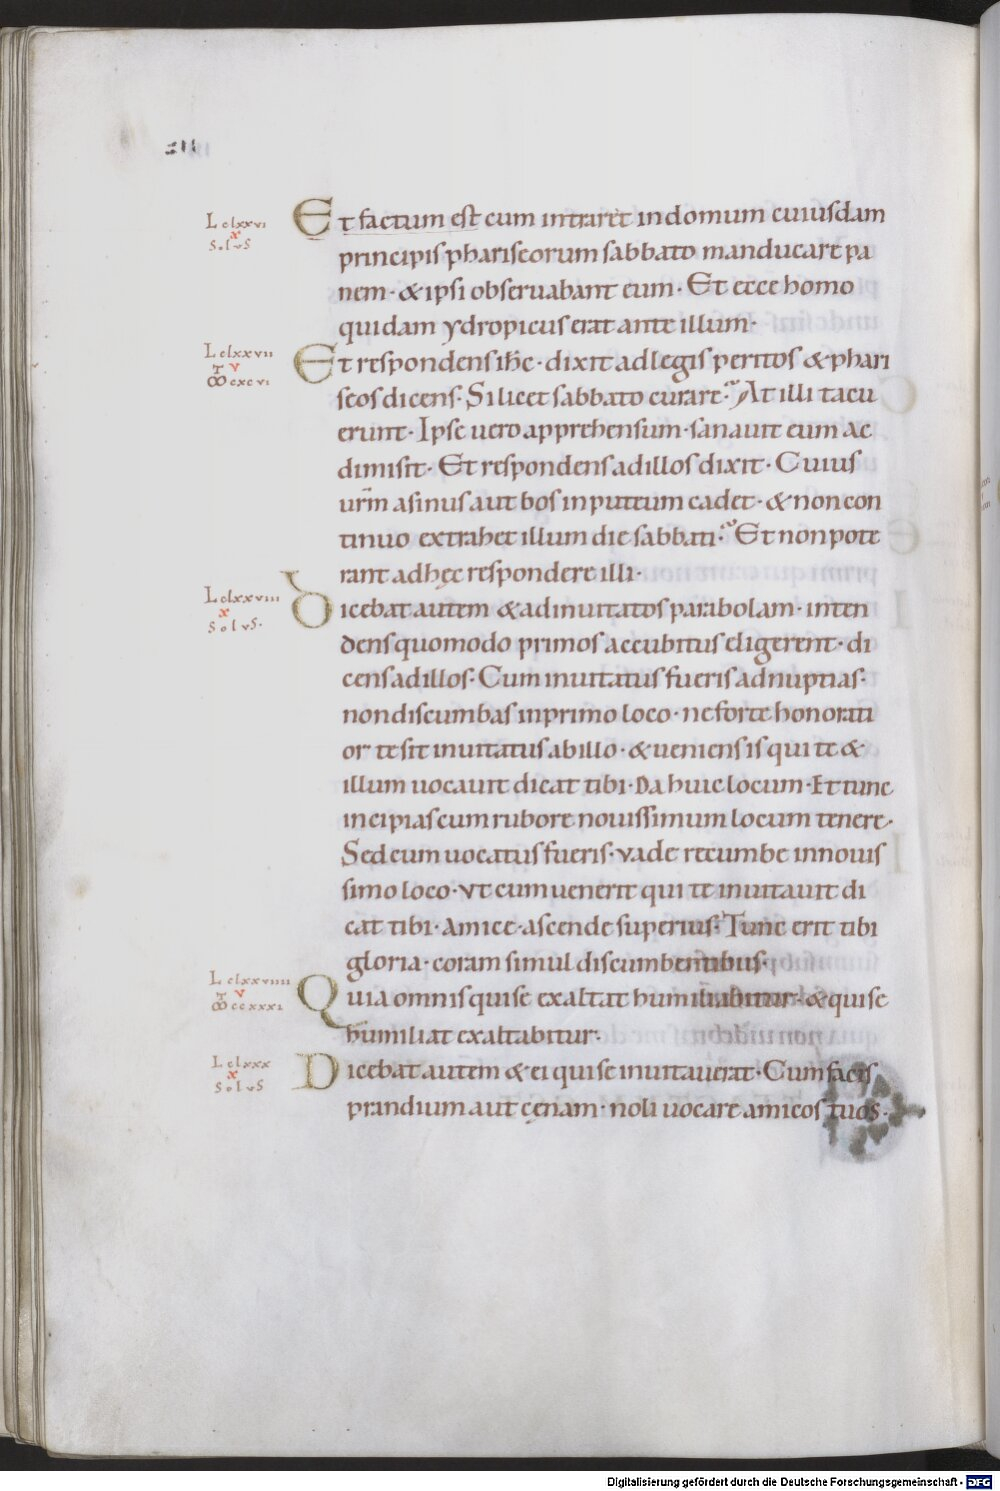 L clxxvi
x
Solus
Et factum est cum intraret in domum cuiusdam
principis phariseorum sabbato manducare pa
nem · & ipsi obseruabant eum · Et ecce homo
quidam ydropicus erat ante illum ·
L clxxvii
v
cxcvi
Et respondens ihc · dixit ad legis peritos & phari
seos dicens · Si licet sabbato curare? At illi tacu
erunt · Ipse uero apprehensum · sanauit eum ac
dimisit · Et respondens ad illos dixit · Cuius
urm asinus aut bos in puteum cadet · & non con
tinuo extrahet illum die sabbati? Et non pote
rant ad hęc respondere illi ·
L clxxviii
x
Solus ·
Dicebat autem & ad inuitatos parabolam · inten
dens quomodo primos accubitus eligerent · di
cens ad illos · Cum inuitatus fueris ad nuptias ·
non discumbas in primo loco · ne forte honorati
or te sit inuitatus ab illo · & ueniens is qui te &
illum uocauit dicat tibi · Da huic locum · Et tunc
incipias cum rubore nouissimum locum tenere ·
Sed cum uocatus fueris · vade recumbe in nouis
simo loco · vt cum uenerit qui te inuitauit di
cat tibi · Amice · ascende superius · Tunc erit tibi
gloria · coram simul discumbentibus ·
L clxxviiii
v
ccxxxi
Quia omnis qui se exaltat humiliabitur · & qui se
humiliat exaltabitur ·
L clxxx
x
Solus
Dicebat autem & ei qui se inuitauerat · Cum facis
prandium aut cęnam · noli uocare amicos tuos ·
Digitalisierung gefördert durch die Deutsche Forschungsgemeinschaft - DFG